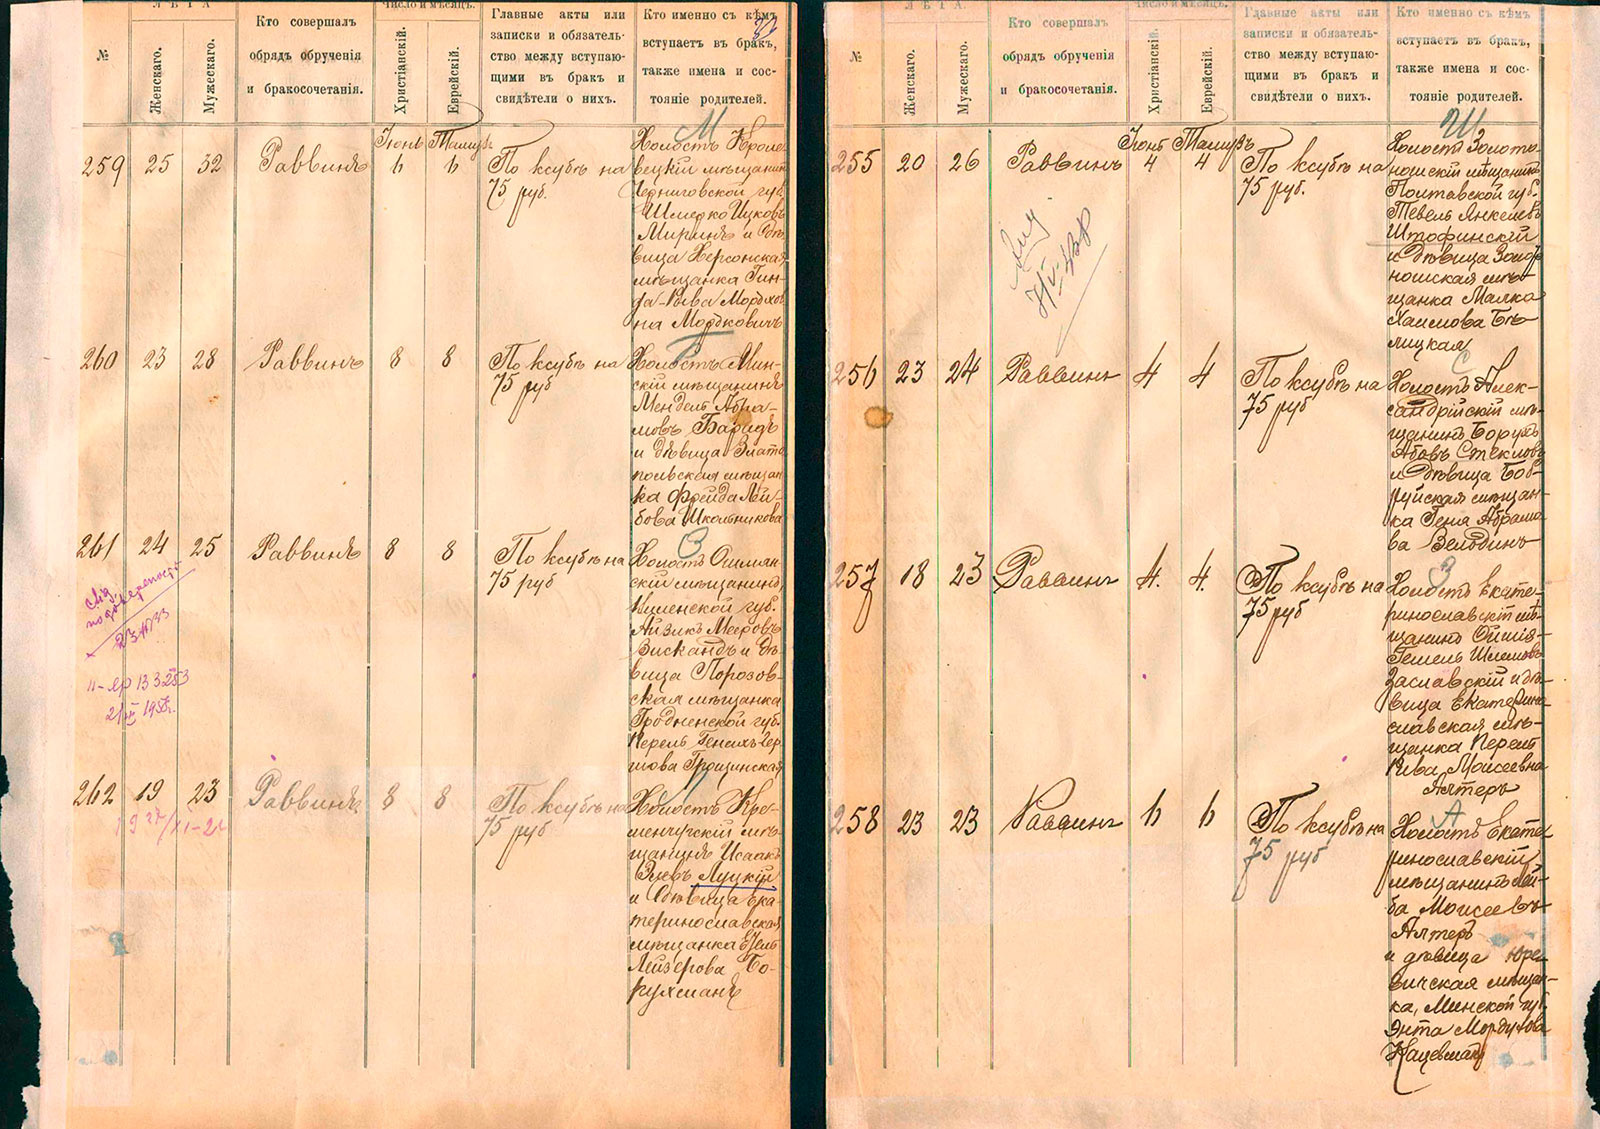 ЛѢТА
Число и мѣсяцъ.
№
Женскаго.
Мужескаго.
Кто совершалъ
обрядъ обрученія
и бракосочетанія.
Христіанскій.
Еврейскій.
Главные акты или
записки и обязатель-
ство между вступаю-
щими въ бракъ и
свидѣтели о нихъ.
Кто именно съ кѣмъ
вступаетъ въ бракъ,
также имена и сос-
тояніе родителей.
Іюнь Тамузъ
М
259 25 32 Раввинъ 6 6
По ксубѣ на
75 руб.
Холостъ Кроле-
вецкій мѣщанинъ
Черниговской губ.
Шмерко Ицковъ
Миринъ и дѣ-
вица Херсонская
мѣщанка Гин-
да-Рива Мордхов-
на Мордковичъ
260 23 28 Раввинъ 8 8
По ксубѣ на
75 руб
Холостъ Мин-
скій мѣщанинъ
Мендель Абра-
мовъ
и дѣвица Злато-
польская мѣщан-
ка Фрейда Лей-
бова Школьникова
З
261 24 25 Раввинъ 8 8
По ксубѣ на
75 руб
Холостъ Ошмян-
скій мѣщанинъ
Виленской губ.
Айзикъ Мееровъ
Зискандъ и дѣ-
вица Порозов-
ская мѣщанка
Гродненской губ.
Перель Генахъ-Гер-
шова Грощинская
262 19 23 Раввинъ 8 8
По ксубѣ на
75 руб
Холостъ Кре-
менчугскій мѣ-
щанинъ Исаакъ
Зневъ Луцкій
и дѣвица Ека-
теринославская
мѣщанка
Лейзерова Бо-
рухманъ
ЛѢТА.
Число и мѣсяцъ.
№
Женскаго.
Мужескаго.
Кто совершалъ
обрядъ обрученія
и бракосочетанія.
Христіанскій.
Еврейскій.
Главные акты или
записки и обязатель-
ство между вступаю-
щими въ бракъ и
свидѣтели о нихъ.
Кто именно съ кѣмъ
вступаетъ въ бракъ,
также имена и сос-
тояніе родителей.
Іюнь Тамузъ
Ш
255 20 26 Раввинъ 4 4
По ксубѣ на
75 руб.
Холостъ Золото-
ношскій мѣщанинъ
Полтавской губ.
Тевель Янкелевъ
Штофинскій
и дѣвица Золот-
ношская мѣ-
щанка Малка
Хаимова Бѣ-
лицкая
С
256 23 24 Раввинъ 4 4
По ксубѣ на
75 руб
Холостъ Алек-
сандрійскій мѣ-
щанинъ Борухъ
Абовъ Стекловъ
и дѣвица Боб-
руйская мѣщан-
ка Геня Абрамо-
ва
З
257 18 23 Раввинъ 4. 4.
По ксубѣ на
75 руб
Холостъ Екате-
ринославскій мѣ-
щанинъ
Гешель Шлемовъ
Заславскій и дѣ-
вица Екатерино-
славская мѣ-
щанка Перель
Рива Моисеевна
Алтеръ
А
258 23 23 Раввинъ 6 6
По ксубѣ на
75 руб
Холостъ Екате-
ринославскій
мѣщанинъ Лей-
ба Моисеевъ
Алтеръ
и дѣвица Юре-
вичская мѣщан-
ка, Минской губ.
Энта Мордухова
Кацевманъ